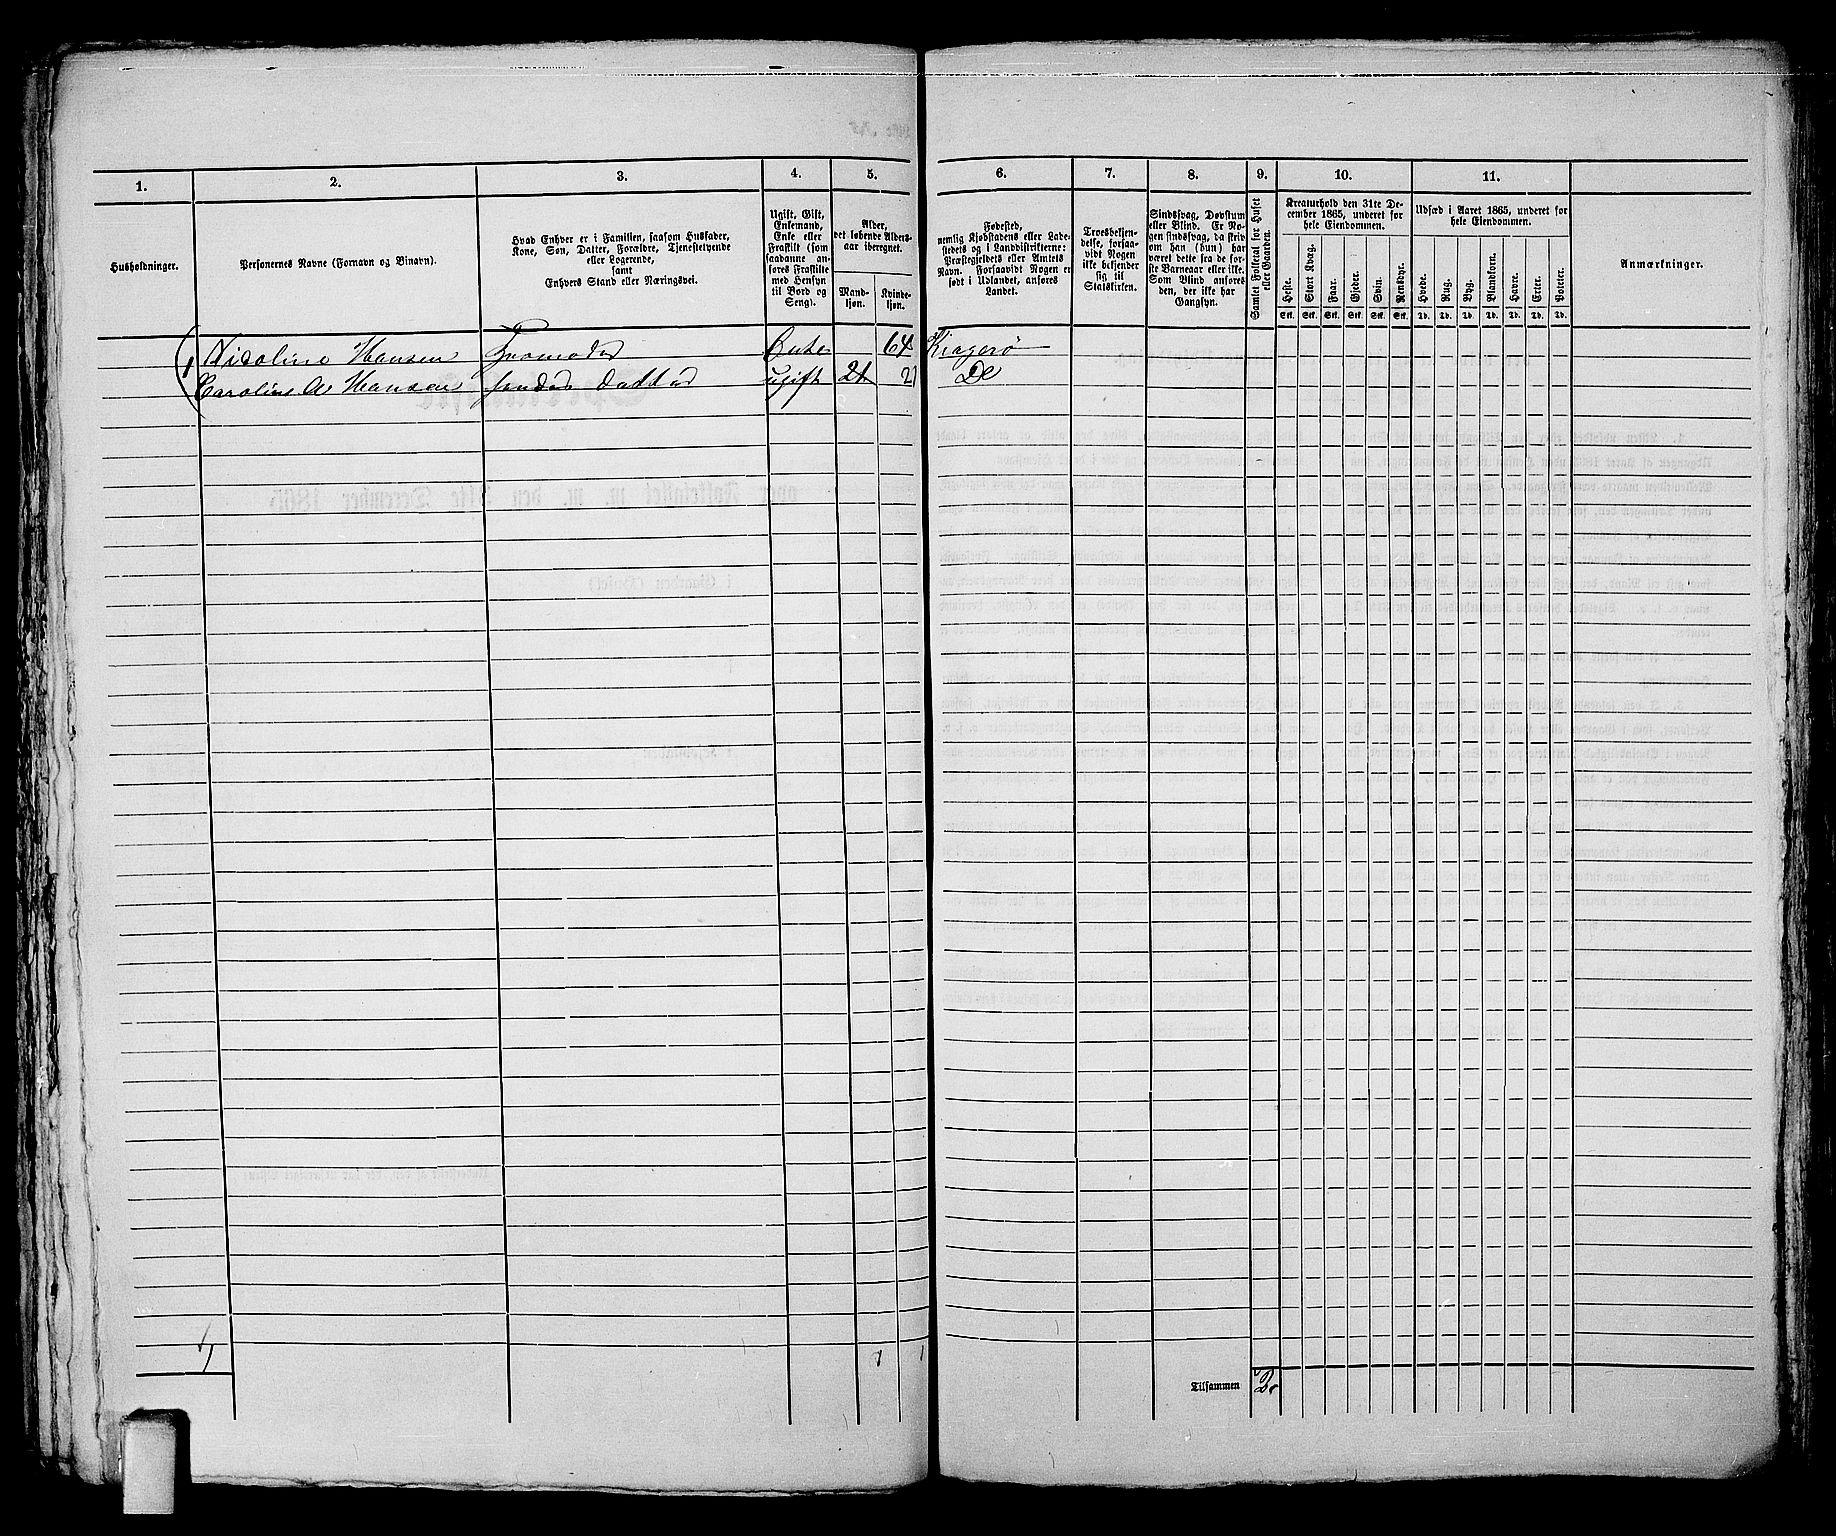 1.
2.
3.
4.
5.
6.
7.
8.
9.
10.
11.
Husholdninger.
Personernes Navne (Fornavn og Binavn).
Hvad Enhver er i Familien, saasom Husfader,
Kone, Søn, Datter, Forældre, Tjenestetyende
eller Logerende,
samt
Enhvers Stand eller Næringsvei.
Ugift, Gift,
Enkemand,
Enke eller
Fraskilt (som
saadanne an-
føres Fraskilte
med Hensyn
til Bord og
Seng).
Alder,
det løbende Alders-
aar iberegnet.
Mand-
kjøn.
Kvinde-
kjøn.
Fødested,
nemlig Kjøbstadens eller Lade-
stedets og i Landdistrikterne:
Præstegjeldets eller Amtets
Navn. Forsaavidt Nogen er
født i Udlandet, anføres
Landet.
Troesbekjen-
delse, forsaa-
vidt Nogen
ikke bekjender
sig til
Statskirken.
Sindssvag, Døvstum
eller Blind. Er No-
gen sindssvag, da skriv
om han (hun) har
været dette fra de før-
ste Barneaar eller ikke.
Som Blind anføres
den, der ikke har
Gangsyn.
Samlet Folketal for Huset
eller Gaarden.
Kreaturhold den 31te De-
cember 1865, underet for
hele Eiendommen.
Heste.
Stort Kvæg.
Faar.
Gjeder.
Svin.
Rensdyr.
Stk. Stk. Stk. Stk. Stk. Stk.
Udsæd i Aaret 1865, underet for
hele Eiendommen.
Hvede.
Rug.
Byg.
Blandkorn.
Havre.
Erter.
Poteter.
Td. Td. Td. Td. Td. Td. Td.
Anmærkninger.
1 Nicoline Hansen Enke 64 Kragerø
Caroline A Hansen Datter ugift 21 21 Do
1 1 1
Tilsammen 2